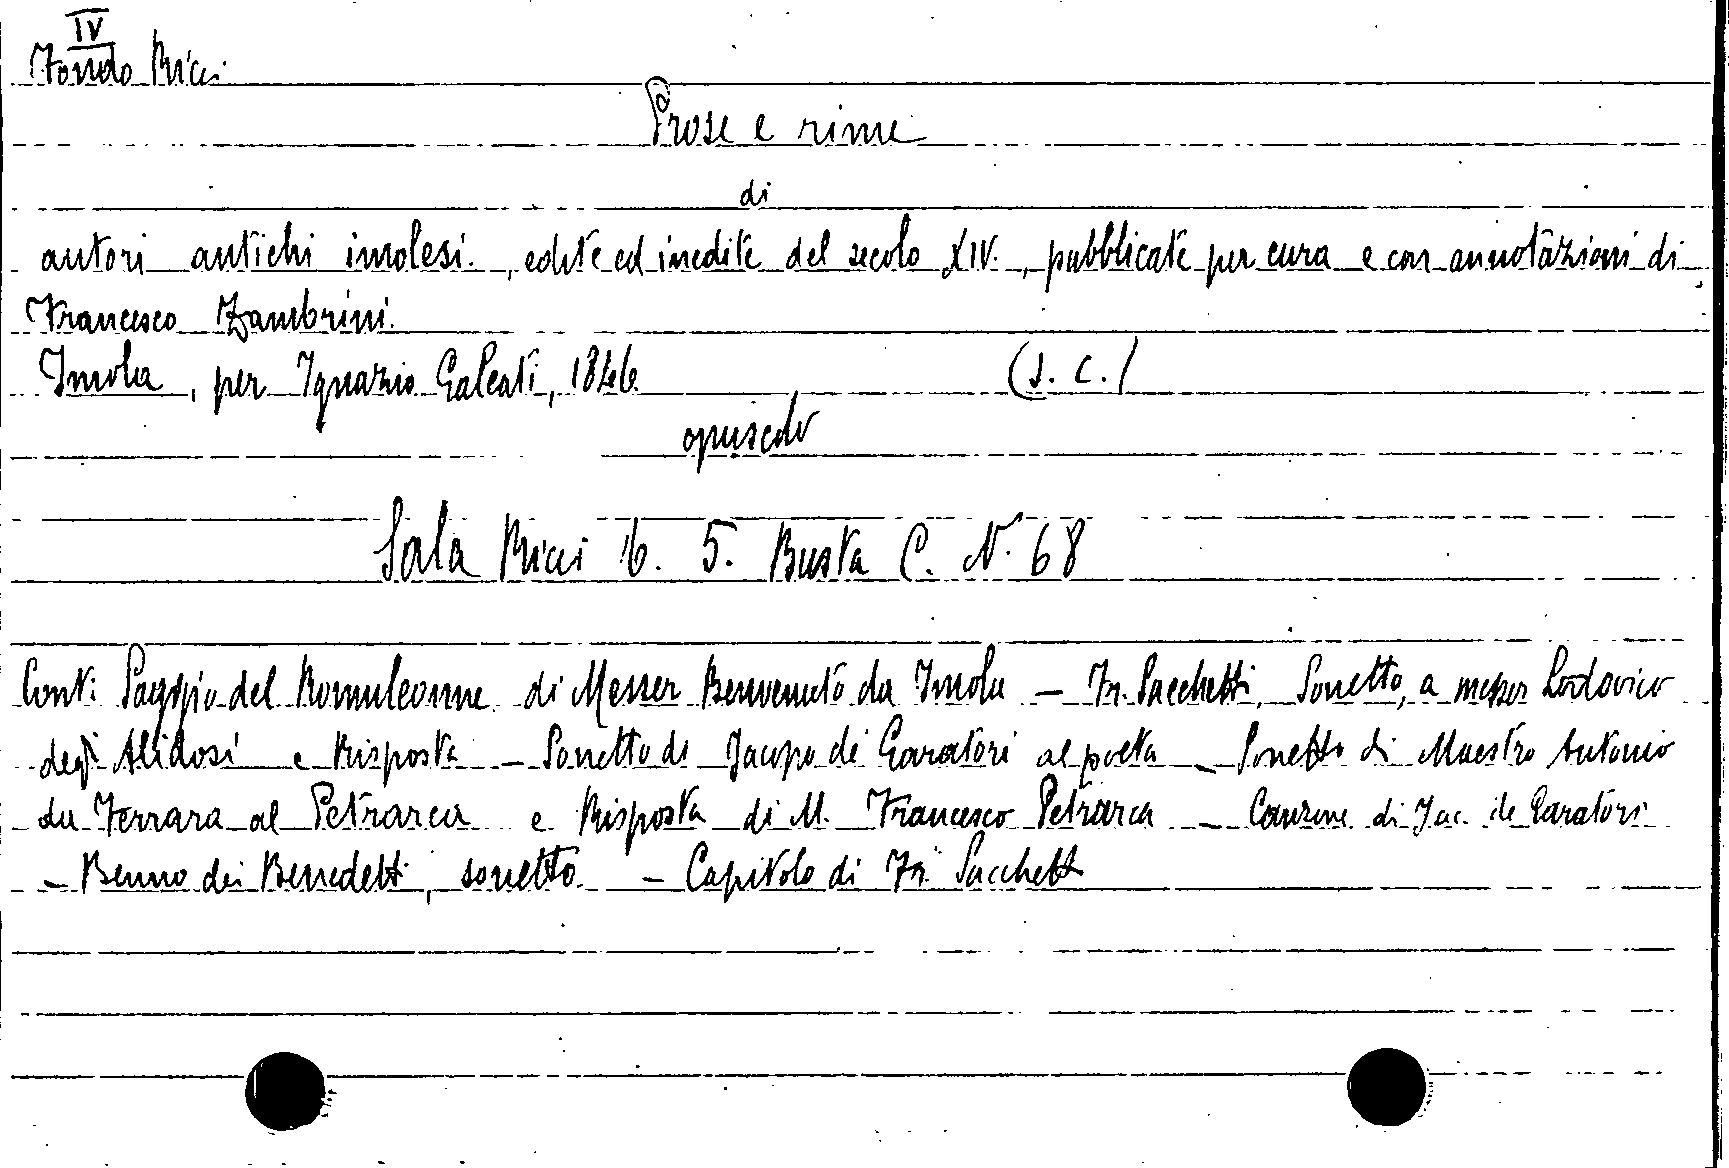 IV
Fondo Ricci
Prose e rime
di
autori antichi imolesi., edite ed inedite del secolo XIV., pubblicate per cura e con annotazioni di
Francesco Zambrini.
Imola, per Ignazio Galeati, 1846 (S. C.)
opuscolo
Sala Ricci 16. 5. Busta C. N. 68
Cont: Saggio del Romuleonne di Messer Benvenuto da Imola – Fr. Sacchetti, Sonetto, a messer Lodovico
degli Alidosi e Risposta – Sonetto di Jacopo de Garatori al poeta – Sonetto di Maestro Antonio
da Ferrara al Petrarca e Risposta di M. Francesco Petrarca – Canzone di Jac. de Garatori
– Benno dei Benedetti, sonetto – Capitolo di Fr. Sacchetti